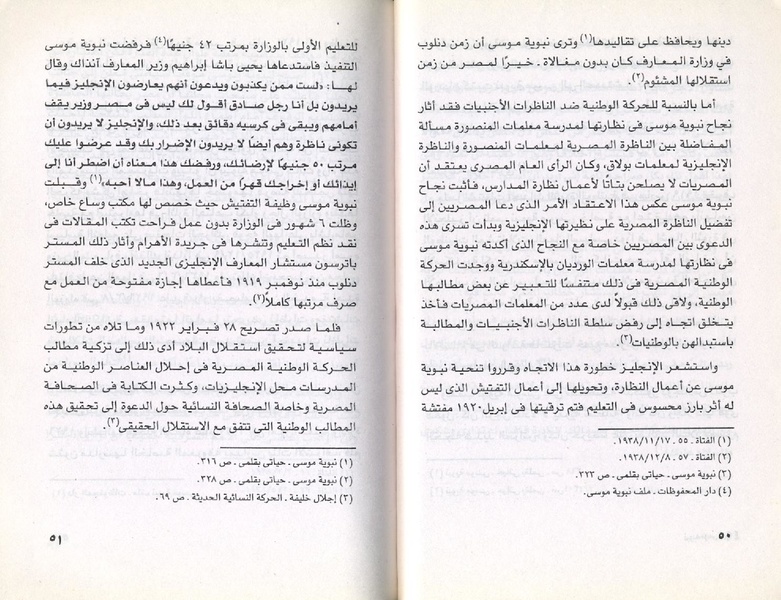 دينها ويحافظ على تقاليدها(١) وترى نبوية موسى أن زمن دنلوب
فى وزارة المعارف كان بدون مغالاة . خيرًا لمصر من زمن
استقلالها المشئوم(٢).
أما بالنسبة للحركة الوطنية ضد الناظرات الأجنبيات فقد آثار
نجاح نبوية موسى فى نظارتها لمدرسة معلمات المنصورة مسألة
المفاضلة بين الناظرة المصرية لمعلمات المنصورة والناظرة
الإنجليزية لمعلمات بولاق، وكان الرأى العام المصرى يعتقد أن
المصريات لا يصلحن بتاتًا لأعمال نظارة المدارس، فأثبت نجاح
نبوية موسى عكس هذا الاعتقاد الأمر الذى دعا المصريين إلى
تفضيل الناظرة المصرية على نظيرتها الإنجليزية وبدأت تسرى هذه
الدعوى بين المصريين خاصة مع النجاح الذى أكدته نبوية موسى
فى نظارتها لمدرسة معلمات الورديان بالإسكندرية ووجدت الحركة
الوطنية المصرية فى ذلك متنفسًا للتعبير عن بعض مطالبها
الوطنية، ولاقى ذلك قبولاً لدى عدد من المعلمات المصريات فأخذ
يتخلق اتجاه إلى رفض سلطة الناظرات الأجنبيات والمطالبة
باستبدالهن بالوطنيات(٣).
واستشعر الإنجليز خطورة هذا الاتجاه وقرروا تنحية نبوية
موسى عن أعمال النظارة، وتحويلها إلى أعمال التفتيش الذى ليس
له أثر بارز محسوس فى التعليم فتم ترقيتها فى إبريل ١٩٢٠ مفتشة
(١) الفتاة . ٥٥ . ١٩٣٨/١١/١٧.
(٢) الفتاة . ٥٧ . ١٩٣٨/١٢/٨.
(٣) نبوية موسى . حياتى بقلمى . ص ٣٢٣.
(٤) دار المحفوظات . ملف نبوية موسى.
٥٠
للتعليم الأولى بالوزارة بمرتب ٤٢ جنيهًا(٤) فرفضت نبوية موسى
التنفيذ فاستدعاها يحيى باشا إبراهيم وزير المعارف آنذاك وقال
لهـا: «لست ممن يكذبون ويدعون أنهم يعارضون الإنجليز فيما
يريدون بل أنا رجل صادق أقول لك ليس فى مصر وزير يقف
أمامهم ويبقى فى كرسيه دقائق بعد ذلك، والإنجليز لا يريدون أن
تكونى ناظرة وهم أيضًا لا يريدون الإضرار بك وقد عرضوا عليك
مرتب ٥٠ جنيهًا لإرضائك، ورفضك هذا معناه أن اضطر أنا إلى
إيذائك أو إخراجك قهرًا من العمل، وهذا مالا أحبه»(١) وقبلت
نبوية موسى وظيفة التفتيش حيث خصص لها مكتب وساع خاص،
وظلت ٦ شهور فى الوزارة بدون عمل فراحت تكتب المقالات فى
نقد نظم التعليم وتنشرها فى جريدة الأهرام وآثار ذلك المستر
باترسون مستشار المعارف الإنجليزى الجديد الذى خلف المستر
دنلوب منذ نوفمبر ١٩١٩ فأعطاها إجازة مفتوحة من العمل مع
صرف مرتبها كاملاً(٢).
فلما صدر تصريح ٢٨ فبراير ١٩٢٢ وما تلاه من تطورات
سياسية لتحقيق استقلال البلاد أدى ذلك إلى تزكية مطالب
الحركة الوطنية المصرية فى إحلال العناصر الوطنية من
المدرسات محل الإنجليزيات، وكثرت الكتابة فى الصحافة
المصرية وخاصة الصحافة النسائية حول الدعوة إلى تحقيق هذه
المطالب الوطنية التى تتفق مع الاستقلال الحقيقى(٣).
(١) نبوية موسى . حياتى بقلمى . ص ٣١٦.
(٢) نبوية موسى . حياتى بقلمى . ص ٣٢٨.
(٣) إجلال خليفة . الحركة النسائية الحديثة . ص ٦٩.
٥١